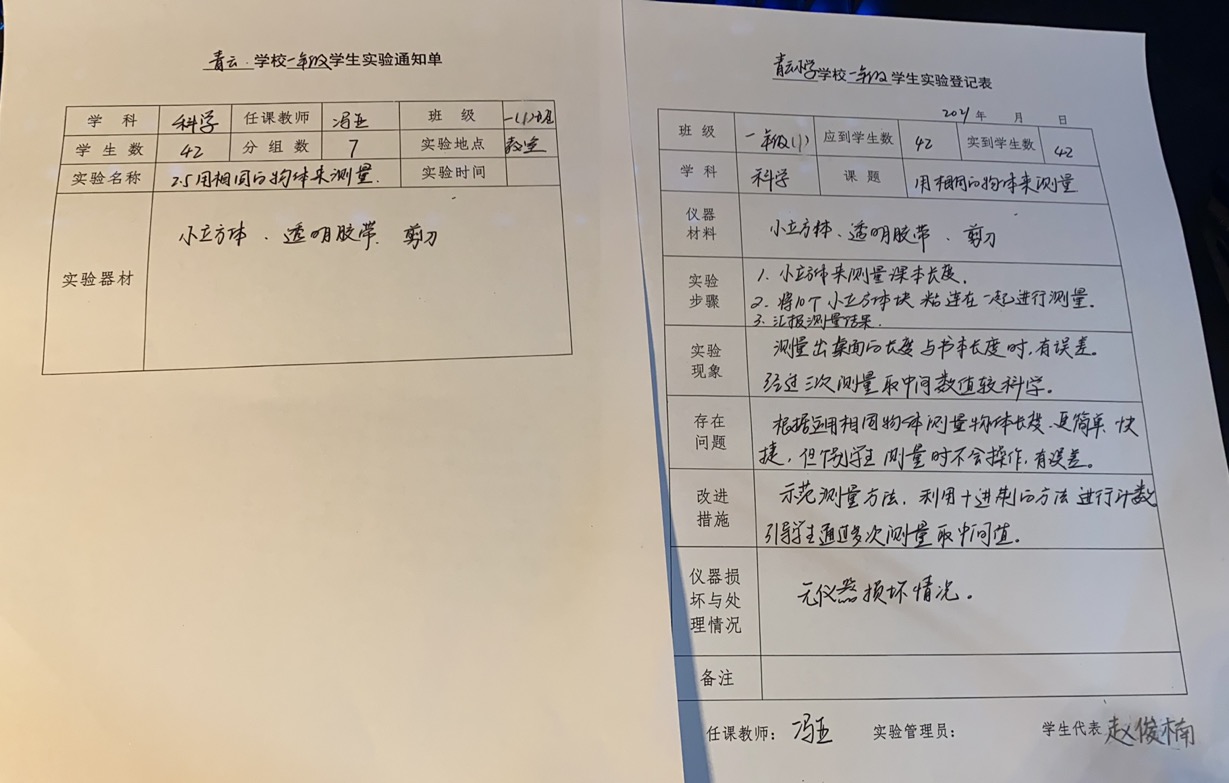 青云 学校一年级学生实验通知单
学科 科学 任课教师 冯亚 班级 一(1)班
学生数 42 分组数 7 实验地点 教室
实验名称 2.5用相同的物体来测量. 实验时间
实验器材 小立方体、透明胶带、剪刀
青云小学学校一年级学生实验登记表
2021年 月 日
班级 一年级(1) 应到学生数 42 实到学生数 42
学科 科学 课题 用相同的物体来测量
仪器材料 小立方体、透明胶带、剪刀
实验步骤 1. 小立方体来测量课本长度.
2. 将10个小立方体块粘连在一起进行测量.
3. 汇报测量结果.
实验现象 测量出桌面的长度与书本长度时,有误差。
经过三次测量取中间数值较科学。
存在问题 根据运用相同物体测量物体长度,更简单快
捷,但个别学生测量时不会操作,有误差。
改进措施 示范测量方法,利用十进制的方法进行计数,
引导学生通过多次测量取中间值。
仪器损坏与处理情况 无仪器损坏情况。
备注
任课教师: 冯亚 实验管理员: 学生代表 赵俊楠